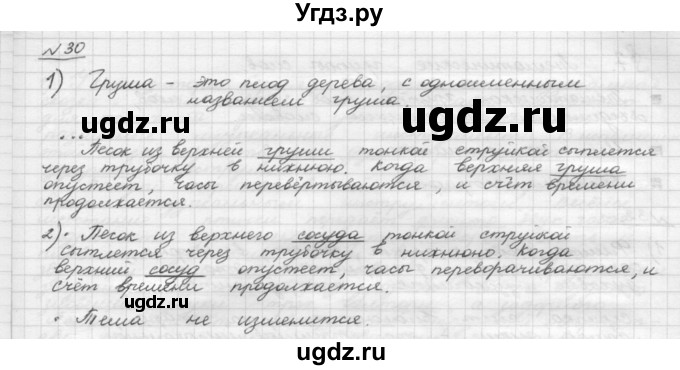 Угдз.ру
№ 30
1) Груша – это плод дерева, с одноименным
названием груша.
ugdz.ru
ugdz.ru
... Песок из верхней груши тонкой струйкой сыплется
через трубочку в нижнюю. Когда верхняя груша
опустеет, часы перевёртываются, и счёт времени
продолжается.
2). Песок из верхнего сосуда тонкой струйкой
сыплется через трубочку в нижнюю. Когда
верхний сосуд опустеет, часы переворачиваются, и
счёт времени продолжается.
ugdz.ru
ugdz.ru
• Тема не изменится.
ugdz.ru